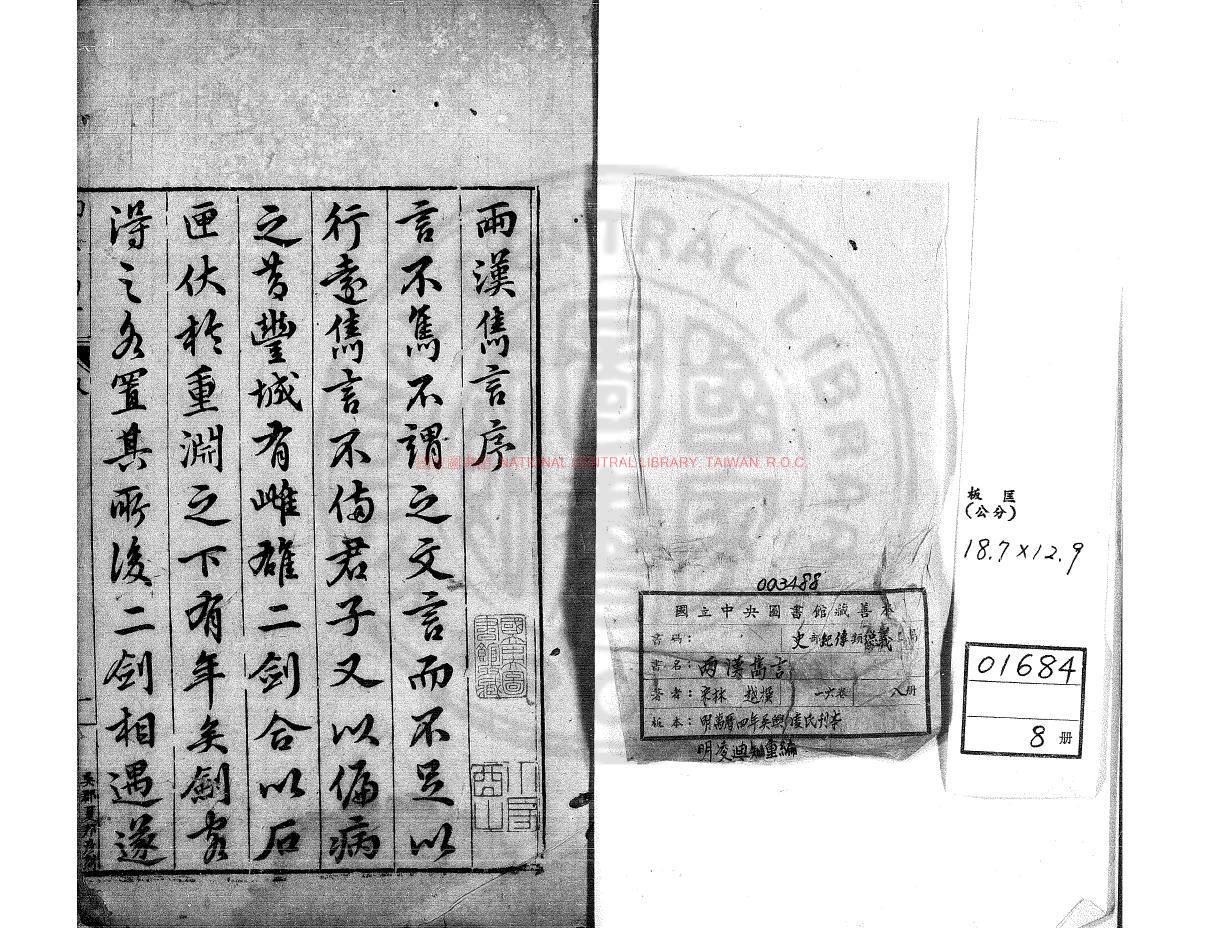 兩漢雋言序
言不雋不謂之文言而不足以
行遠雋言不備君子又以偏病
之昔豐城有雌雄二劍合以石
匣伏於重淵之下有年矣劍客
得之各置其所後二劍相遇遂
國立中央圖書館 NATIONAL CENTRAL LIBRARY, TAIWAN, R.O.C
CENTRAL LIBRARY
板匡
(公分)
18.7×12.9
003488
國立中央圖書館藏善本
書碼: 史部紀傳類
書名: 兩漢雋言
著者: 宋林越撰 一六卷 八册
板本: 明萬曆四年吳興凌氏刊本
明凌迪知重編
01684
8 册